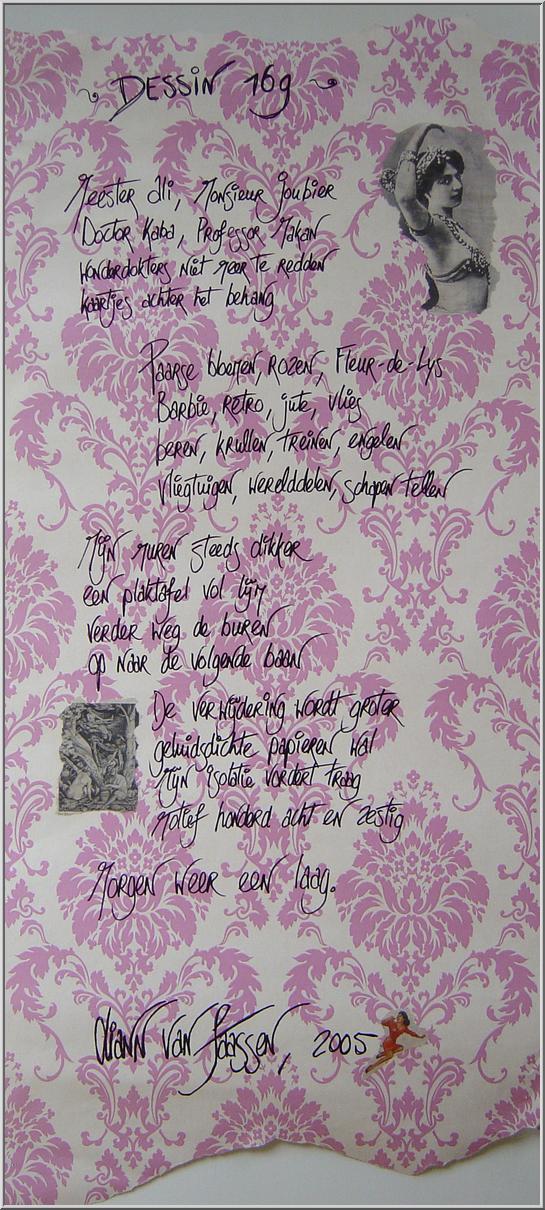 DESSIN 169
Meester Ali, Monsieur Joubier
Doctor Kaba, Professor Makan
wonderdokters niet meer te redden
kaartjes achter het behang
Paarse bloemen, rozen, Fleur-de-Lys
Barbie, retro, jute, vlies
beren, krullen, treinen, engelen
vliegtuigen, werelddelen, schapen tellen
Mijn muren steeds dikker
een plaktafel vol lijm
verder weg de buren
op naar de volgende baan
De verwijdering wordt groter
geluidsdichte papieren wal
Mijn isolatie vordert traag
Motief honderd acht en zestig
Morgen weer een laag.
Diann van Faassen, 2005